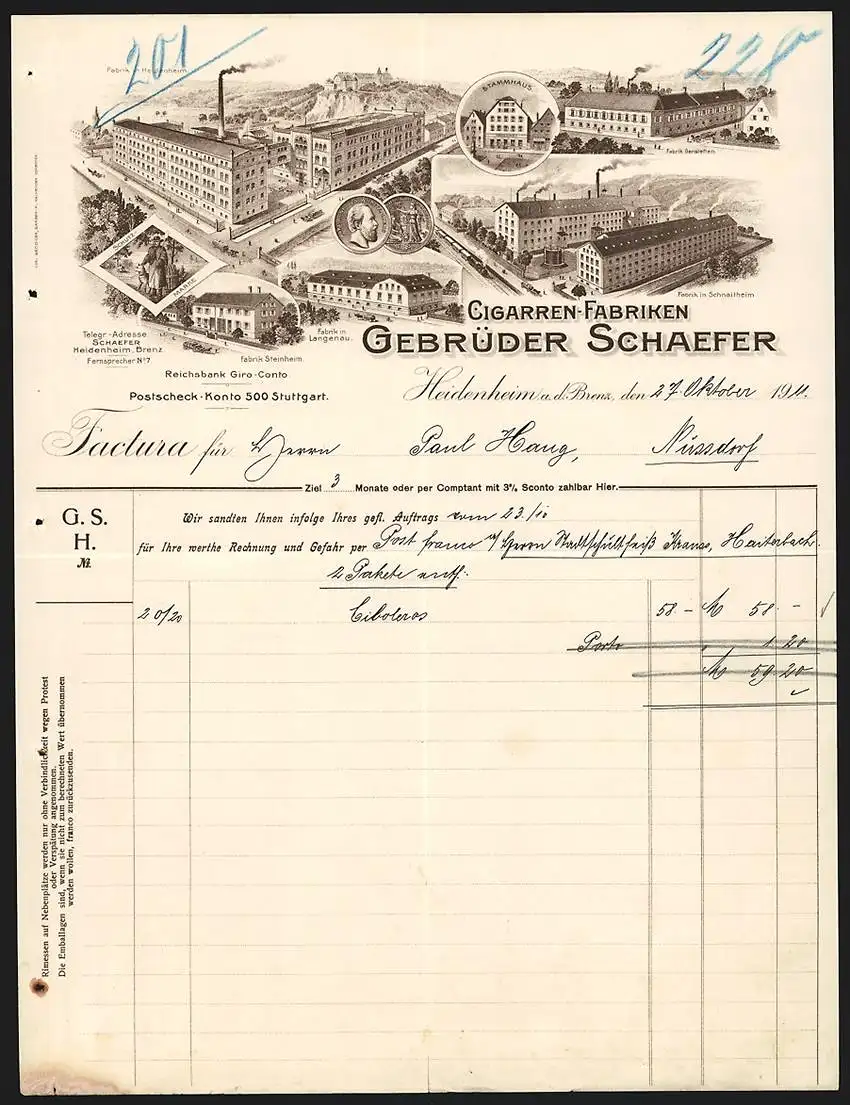 201
228
Fabrik in Heidenheim.
STAMMHAUS.
Fabrik Gerstetten.
SCHUTZ MARKE
Fabrik in Schnaitheim
Fabrik in Langenau.
Fabrik Steinheim.
Telegr.-Adresse
SCHAEFER
Heidenheim, Brenz.
Fernsprecher No 7.
CIGARREN-FABRIKEN
GEBRÜDER SCHAEFER
Reichsbank Giro-Conto
Postscheck-Konto 500 Stuttgart.
Heidenheim a. d. Brenz, den 27. Oktober 1911.
Factura für Herrn Paul Haug, Nussdorf
Ziel 3 Monate oder per Comptant mit 3% Sconto zahlbar Hier.
G. S.
H.
No.
Wir sandten Ihnen infolge Ihres gefl. Auftrags vom 23./10
für Ihre werthe Rechnung und Gefahr per Post franco Herrn Stadtschultheiß Krauss, Haiterbach.
2 Pakete enth:
20/20 Ciboleros 58.- M 58.-
Porto " 1.20
M 59.20
Rimessen auf Nebenplätze werden nur ohne Verbindlichkeit wegen Protest
oder Verspätung angenommen.
Die Emballagen sind, wenn sie nicht zum berechneten Wert übernommen
werden wollen, franco zurückzusenden.